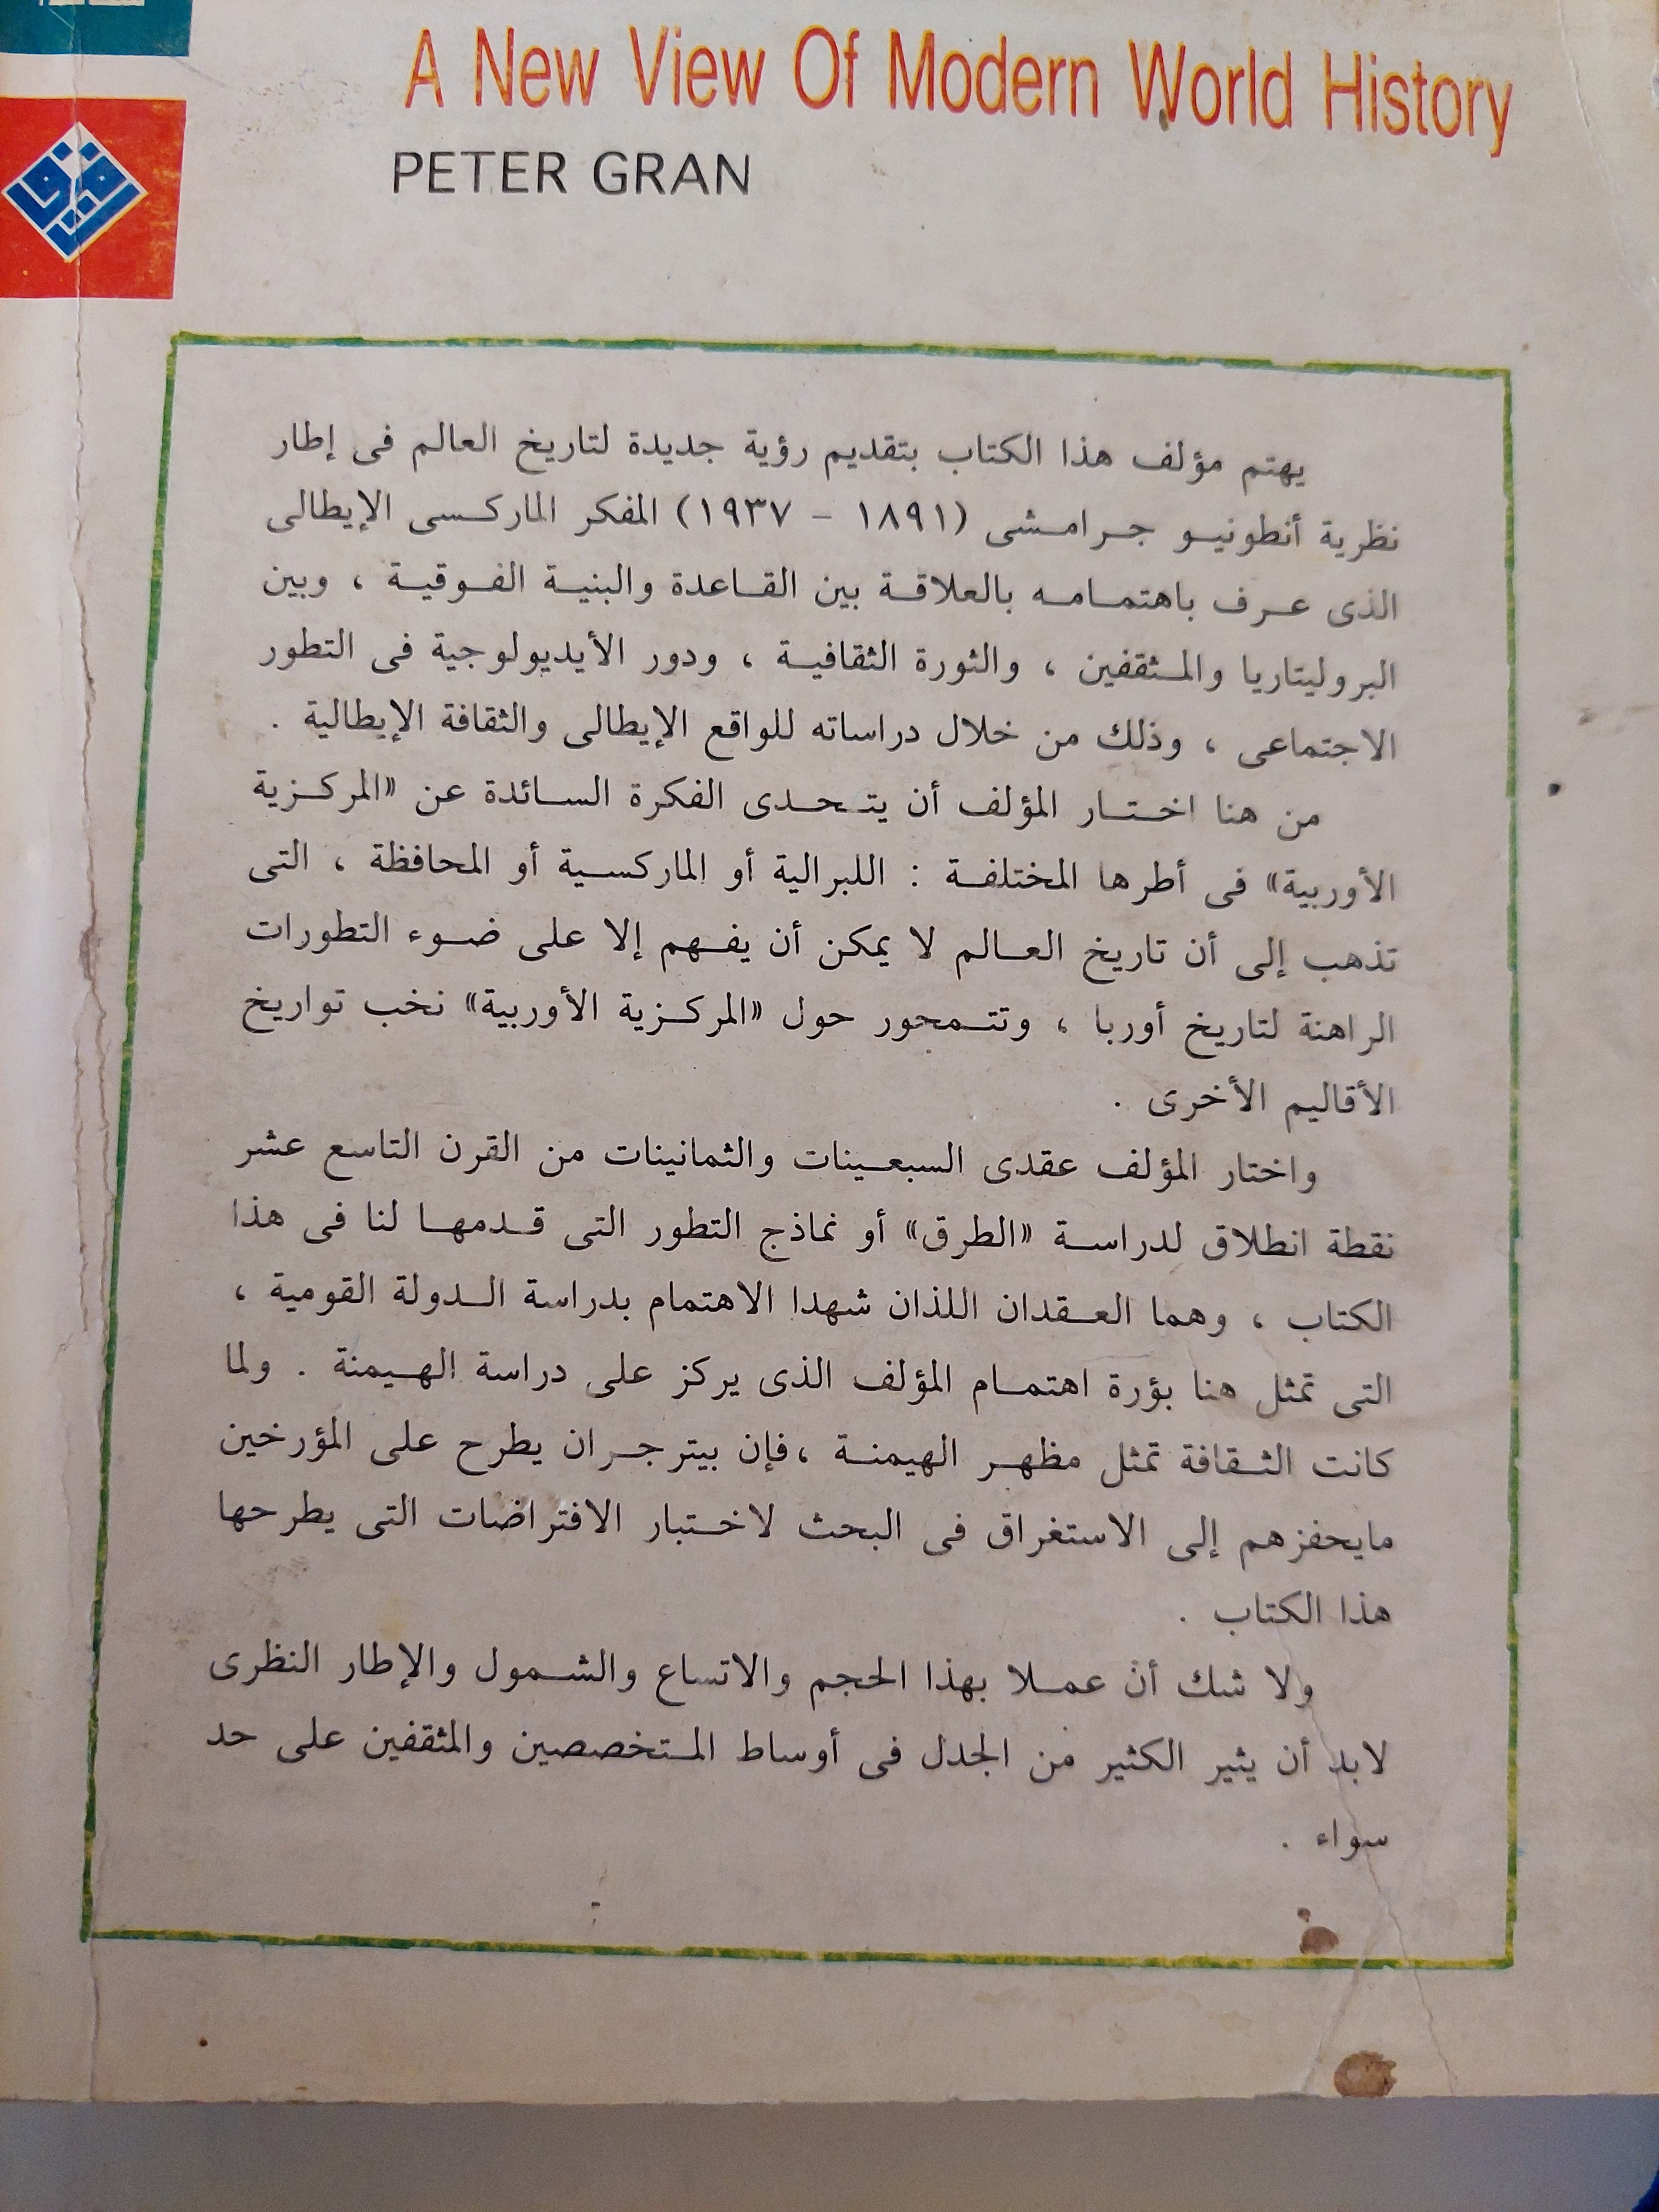 A New View Of Modern World History
PETER GRAN
يهتم مؤلف هذا الكتاب بتقديم رؤية جديدة لتاريخ العالم فى إطار
نظرية أنطونيو جرامشى (١٨٩١ - ١٩٣٧) المفكر الماركسى الإيطالى
الذى عرف باهتمامه بالعلاقة بين القاعدة والبنية الفوقية ، وبين
البروليتاريا والمثقفين ، والثورة الثقافية ، ودور الأيديولوجية فى التطور
الاجتماعى ، وذلك من خلال دراساته للواقع الإيطالى والثقافة الإيطالية .
من هنا اختار المؤلف أن يتحدى الفكرة السائدة عن «المركزية
الأوربية» فى أطرها المختلفة : اللبرالية أو الماركسية أو المحافظة ، التى
تذهب إلى أن تاريخ العالم لا يمكن أن يفهم إلا على ضوء التطورات
الراهنة لتاريخ أوربا ، وتتمحور حول «المركزية الأوربية» نخب تواريخ
الأقاليم الأخرى .
واختار المؤلف عقدى السبعينات والثمانينات من القرن التاسع عشر
نقطة انطلاق لدراسة «الطرق» أو نماذج التطور التى قدمها لنا فى هذا
الكتاب ، وهما العقدان اللذان شهدا الاهتمام بدراسة الدولة القومية ،
التى تمثل هنا بؤرة اهتمام المؤلف الذى يركز على دراسة الهيمنة . ولما
كانت الثقافة تمثل مظهر الهيمنة ،فإن بيتر جران يطرح على المؤرخين
مايحفزهم إلى الاستغراق فى البحث لاختبار الافتراضات التى يطرحها
هذا الكتاب .
ولا شك أن عملا بهذا الحجم والاتساع والشمول والإطار النظرى
لابد أن يثير الكثير من الجدل فى أوساط المتخصصين والمثقفين على حد
سواء .